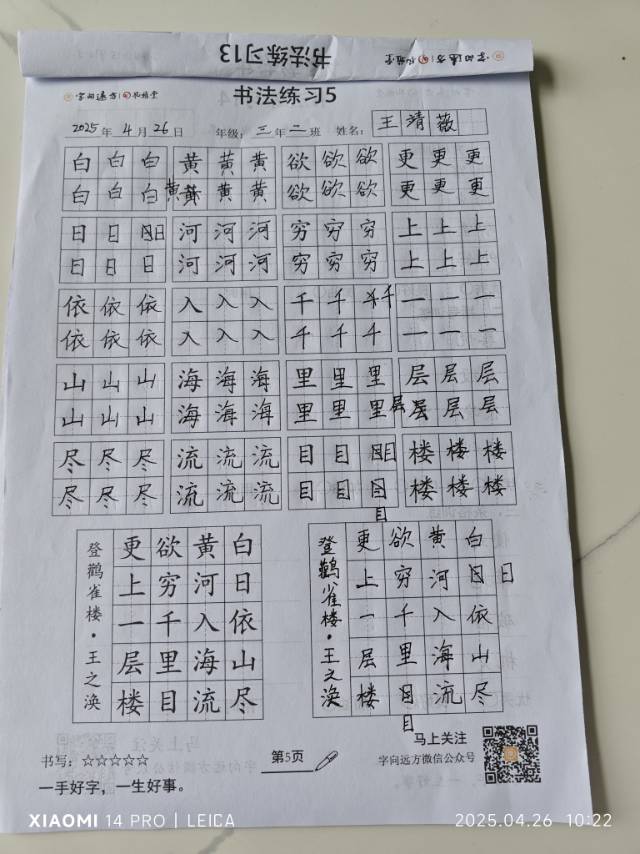 书法练习13
字向远方
字向远方
书法练习5
2025年 4月 26日 年级：三年二班 姓名：王靖薇
白 白 白 黄 黄 黄 欲 欲 欲 更 更 更
白 白 白 黄 黄 黄 黄 欲 欲 欲 更 更 更
日 日 日 日 河 河 河 穷 穷 穷 上 上 上
日 日 日 河 河 河 穷 穷 穷 上 上 上
依 依 依 入 入 入 千 千 千 千 一 一 一
依 依 依 入 入 入 千 千 千 一 一 一
山 山 山 海 海 海 里 里 里 层 层 层
山 山 山 海 海 海 里 里 里 层 层 层 层
尽 尽 尽 流 流 流 目 目 目 目 楼 楼 楼
尽 尽 尽 流 流 流 目 目 目 楼 楼 楼
目
白日依山尽
黄河入海流
欲穷千里目
更上一层楼
登鹳雀楼·王之涣
白日日依山尽
黄河入海流
欲穷千里目目
更上一层楼
登鹳雀楼·王之涣
书写：☆☆☆☆☆
一手好字，一生好事。
第5页
马上关注
字向远方微信公众号
XIAOMI 14 PRO | LEICA
2025.04.26 10:22